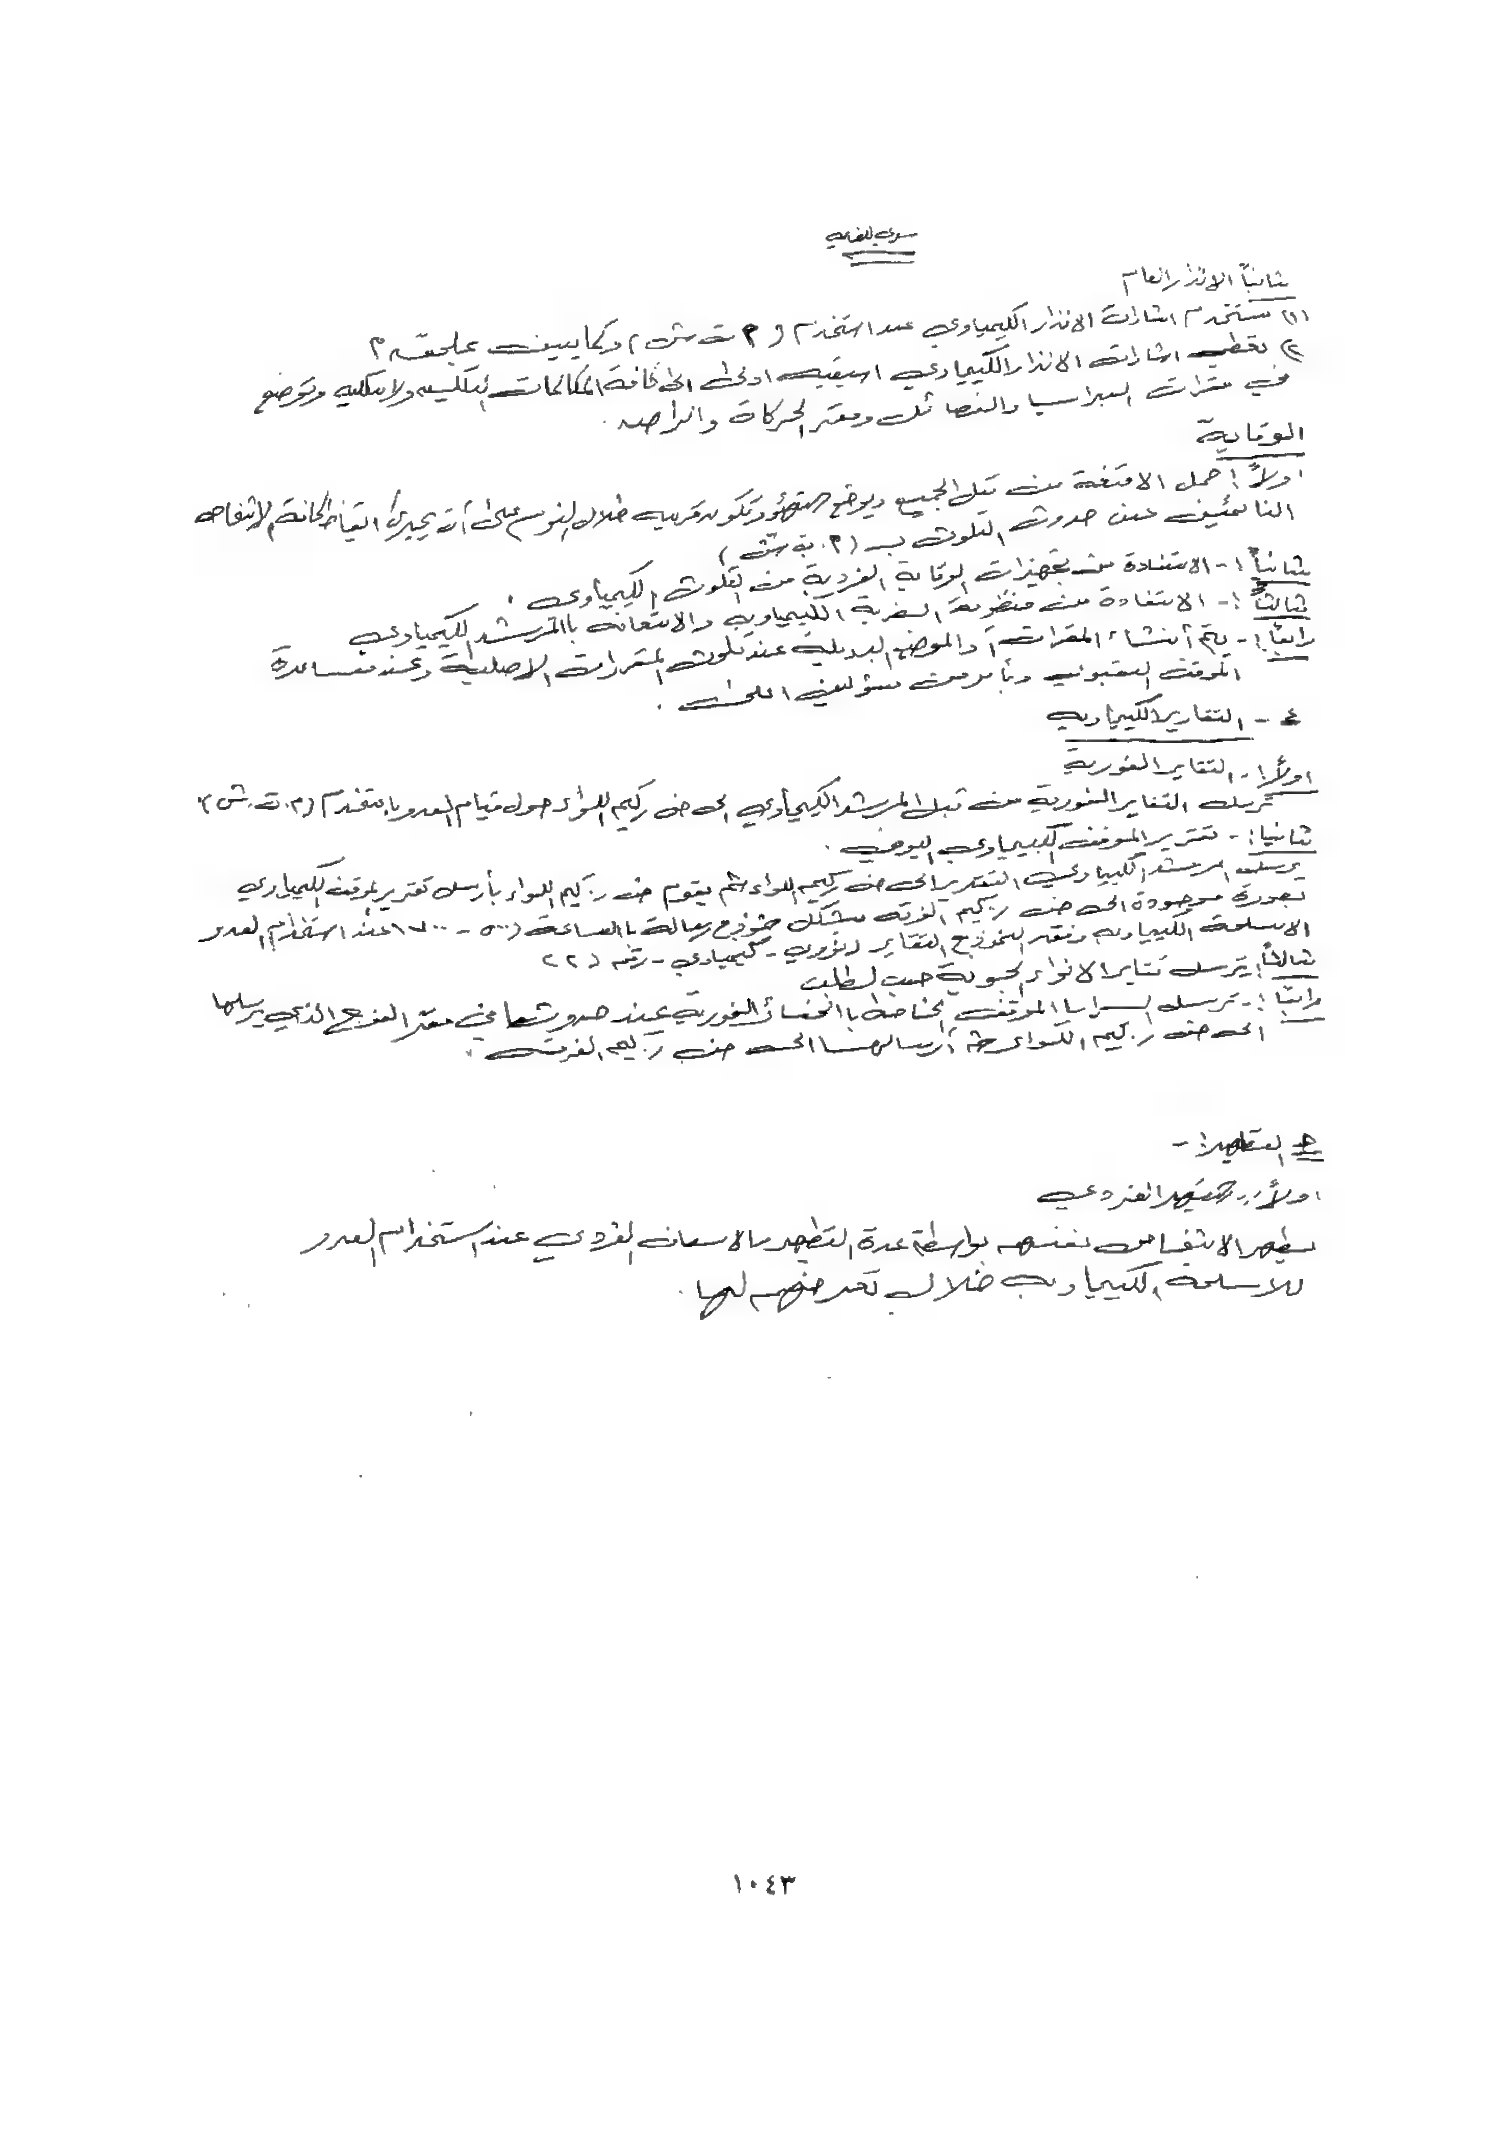 سري للغاية
ثانياً الانذار العام
(١) تستخدم اشارات الانذار الكيمياوي عند استخدام (م ت ش) وكما يبين بملحق م
(٢) تعطى اشارات الانذار الكيمياوي اسبقية اولى الى كافة المكالمات السلكية ولاسلكية وتوضع
في مقرات السرايا والفصائل ومقر الحركات والراصد.
الوقاية
اولاً: حمل الاقنعة من قبل الجميع ويوضع التهيؤ وتكون قريبه خلال النوم على أن يجري ايقاظ كافة الاشخاص
النائمين حين حدوث التلوث بـ (م. ت ش)
ثانياً: - الاستفادة من تجهيزات الوقاية الفردية من التلوث الكيمياوي.
ثالثاً: - الاستفادة من منظومة السرية الكيمياوية والاستعانة باالمرشد الكيمياوي
رابعاً: - يتم أنشاء المقرات والموضع البديلة عند تلوث المقرات الاصلية وعند مساعدة
الموقف التعبوي وبأمر من مسؤولين اعلى.
٤ - التقارير الكيمياوية
اولاً: - التقارير الفورية
ترسل التقارير الفورية من قبل المرشد الكيمياوي الى ض ركيم اللواء حول قيام العدو باستخدام (م. ت. ش)
ثانياً: - تقرير الموقف الكيمياوي اليومي.
يرسل المرشد الكيمياوي التقرير الى ض ركيم اللواء ثم يقوم ض ركيم اللواء بأرسل تقرير لموقف الكيمياوي
بصورة موجودة الى ض ركيم الفرقة بشكل نموذج رسالة باالساعة (٥٠٠ - ١٧٠٠) عند استخدام العدو
الاسلحة الكيمياوية وفق النموذج التقارير (نووي - كيمياوي - رقم (٢٢
ثالثاً: ترسل تقارير الانواء الجوية حسب لطلب
رابعاً: - ترسل السرايا الموقف الخاصة باالخسائر الفورية عند حدوثها في مقر الفوج الذي يرسلها
الى ض ركيم اللواء ثم أرسالها الى ض ركيم الفرقة.
التطهير: -
اولاً.. التطهير الفردي
يطهر الاشخاص نفسهم بواسطة عدة التطهير والاسعاف الفردي عند استخدام العدو
للاسلحة الكيمياوية خلال تعرضهم لها.
١٠٤٣